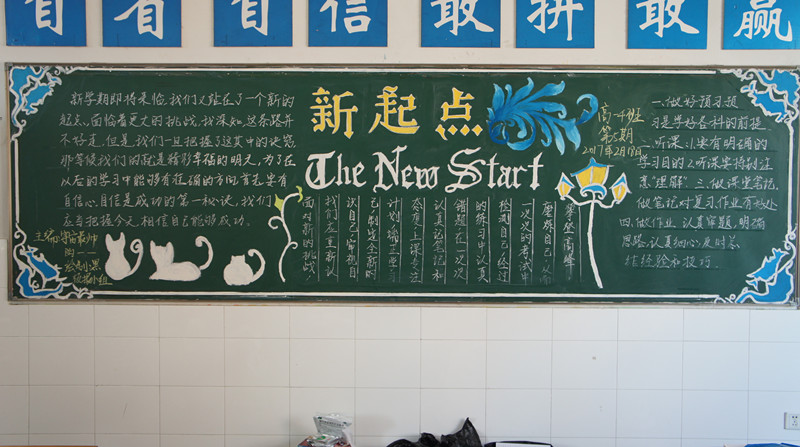 自 自 信 敢 拼 敢 赢
新学期即将来临,我们又站在了一个新的
起点,面临着更大的挑战,我深知,这条路并
不好走,但是,我们一旦把握了这其中的诀窍
那等候我们的就是精彩幸福的明天,为了在
以后的学习中能够有正确的方向,首先要有
自信心,自信是成功的第一秘诀,我们
应当把握今天,相信自己能够成功。
主编:
新起点
The New Start
高一4班
第5期
2017年2月17日
面对新的挑战
我们应重新认
识自己,审视自
己制定全新的
计划,端正学习
态度,上课专注
认真记笔记和
错题,在一次次
的练习中认真
检测自己,经过
一次次的考试中
磨砺自己,从而
攀登高峰
一、做好预习预
习是学好各科的前提
二、听课:1、要有明确的
学习目的2、听课要特别注
意"理解" 三、做课堂笔记,
做笔记对复习、作业有好处
四、做作业,认真审题,明确
思路,认真细心,及时总
结经验和技巧.